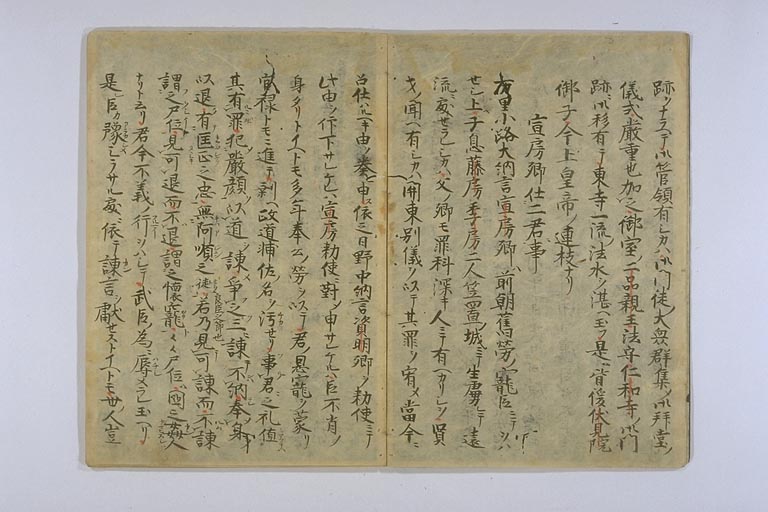 跡ヲナラテ御管領有シカハ御門徒ノ大衆群集ノ御拝堂ノ
儀式厳重也加之御室ノ二品親王法守仁和寺ノ御門
跡ニ御移有テ東寺一流ノ法水ヲ湛ヘ玉フ是皆後伏見院
御子今上皇帝ノ連枝ナリ
宣房卿仕二君事
万里小路大納言宣房卿ハ前朝舊労ノ寵臣ニテヲハ
セシ上子息藤房季房二人笠置城ニテ生虜レテ遠
流ニ處セラレシカハ父ノ卿モ罪科深キ人ニテ有ヘカリシヲ賢
才ノ聞ヘ有シカハ関東別儀ヲ以テ其罪ヲ宥メ當今ニ
召仕ハルヘキ由ヲ奏申ス依之日野中納言資明卿ヲ勅使ニテ
此由ヲ仰下サレケレハ宣房勅使ニ對ノ申サレケルハ臣不肖ノ
身タリトイヘトモ多年奉公ノ労ヲ以テ君ノ恩寵ヲ蒙リ
官禄トモニ進テ剰ヘ政道輔佐ノ名ヲ汚セリ事君之礼値
其有罪犯厳顔以道ヲ諫争之三諫不納奉身
以退有匡正之忠無阿順之徒是良臣之節也若乃見可諫而不諫
謂之尸位見可退而不退謂之懐寵々々尸位ハ國之姦人
ナリト云リ君今不義ノ行ヲハシテ武臣ノ為ニ辱メラレ玉ヘリ
是臣カ豫シラサル處ニ依テ諫言ヲ献セストイヘトモ世ノ人豈